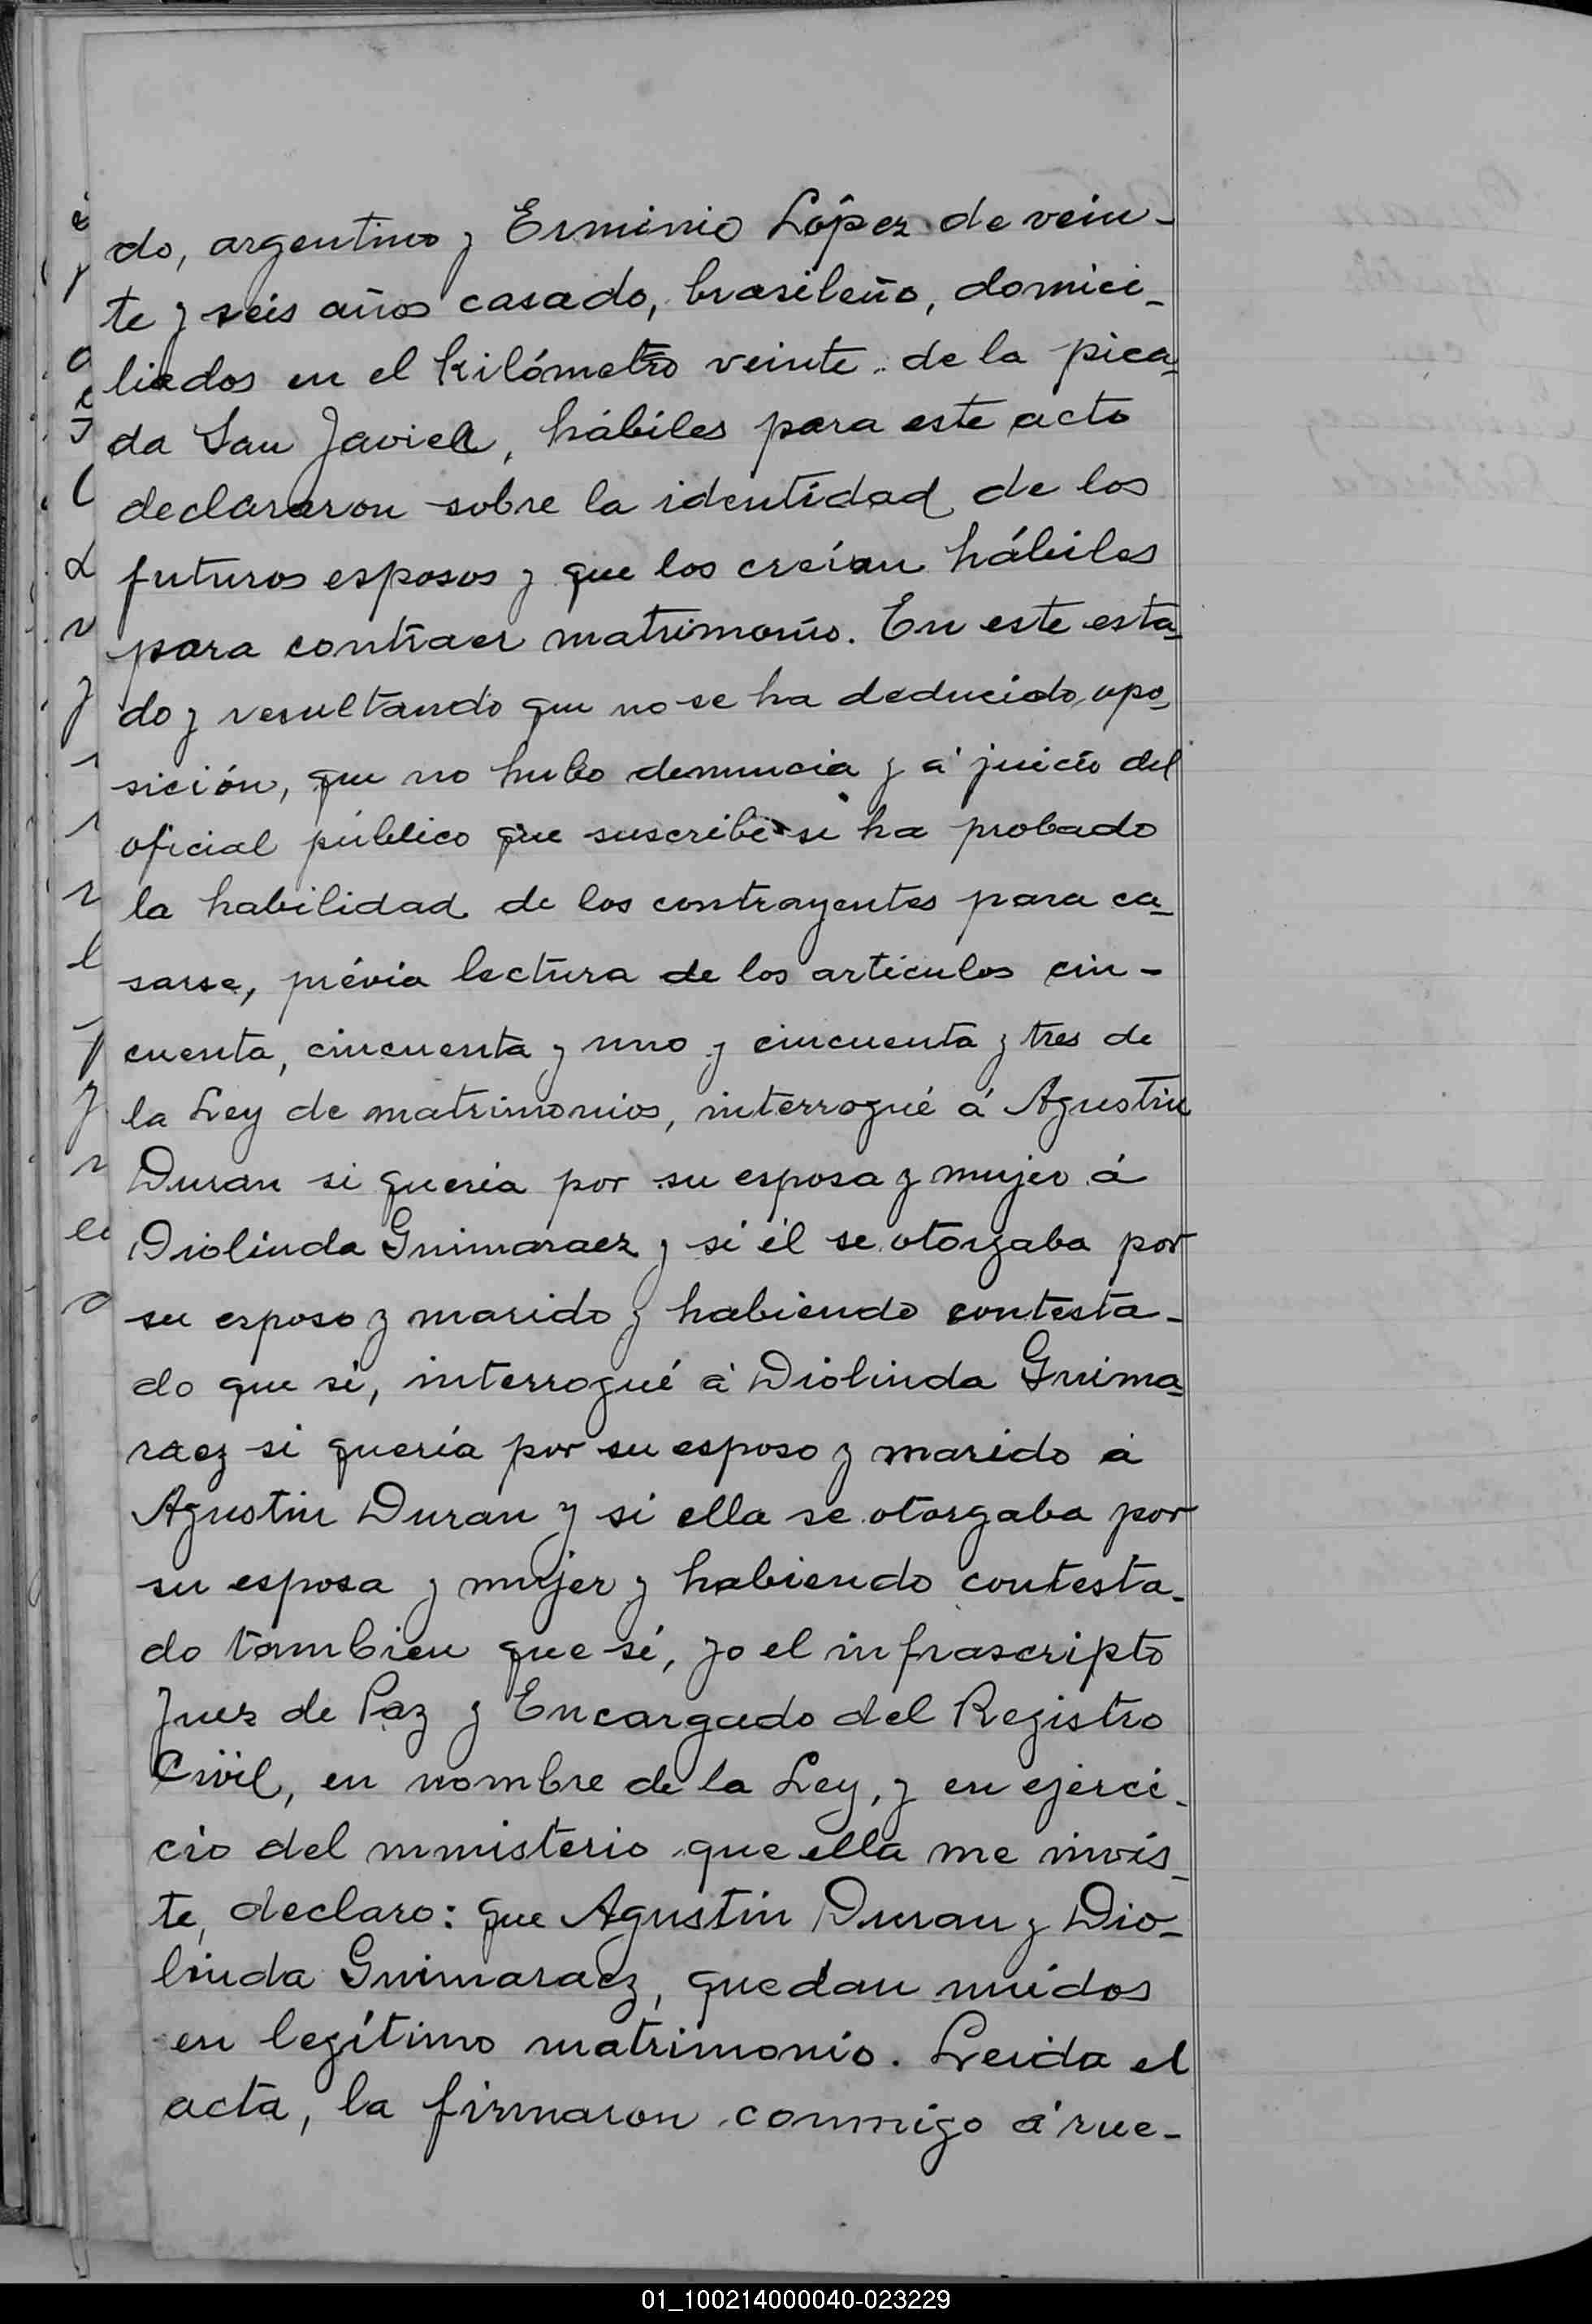 do, argentino y Erminio López de vein-
te y seis años casado, brasileño, domici-
liados en el kilómetro veinte de la pica-
da San Javier, hábiles para este acto
declararon sobre la identidad de los
futuros esposos y que los creían hábiles
para contraer matrimonio. En este esta-
do y resultando que no se ha deducido opo-
sición, que no hubo denuncia y á juicio del
oficial público que suscribe se ha probado
la habilidad de los contrayentes para ca-
sarse, prévia lectura de los artículos cin-
cuenta, cincuenta y uno y cincuenta y tres de
la Ley de matrimonios, interrogué á Agustin
Duran si quería por su esposa y mujer á
Diolinda Guimaraez y si él se otorgaba por
su esposo y marido y habiendo contesta-
do que sí, interrogué á Diolinda Guima-
raez si quería por su esposo y marido á
Agustin Duran y si ella se otorgaba por
su esposa y mujer y habiendo contesta-
do tambien que sí, yo el infrascripto
Juez de Paz y Encargado del Registro
Civil, en nombre de la Ley, y en ejerci-
cio del ministerio que ella me invis-
te, declaro: que Agustin Duran y Dio-
linda Guimaraez, quedan unidos
en legítimo matrimonio. Leida el
acta, la firmaron conmigo á rue-
01_100214000040-023229